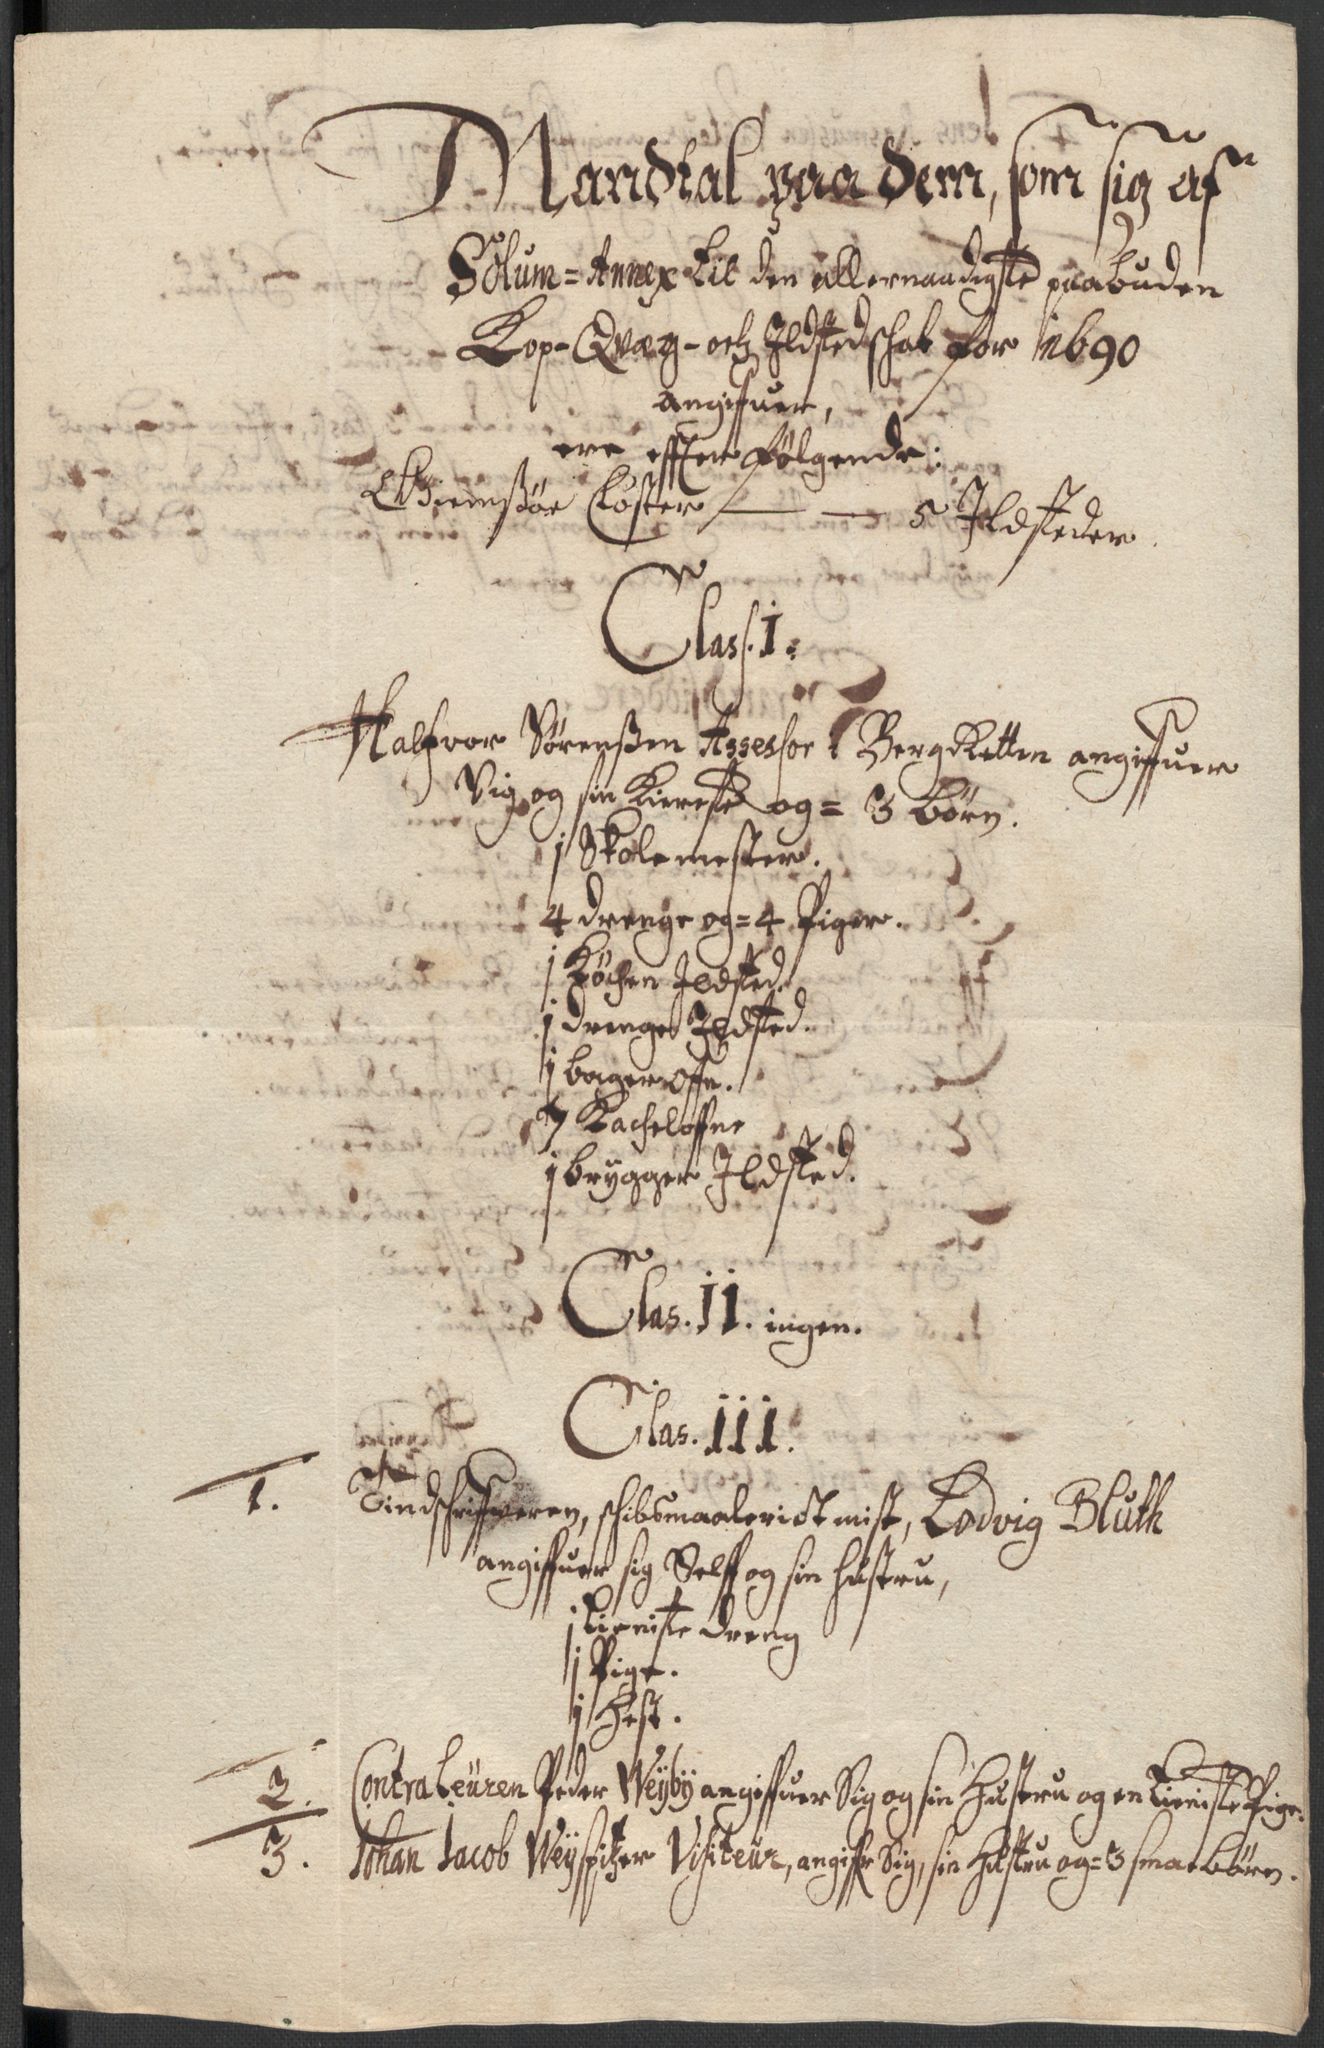 Mandtal paa dem, som sig af
Solum = Annex til den allernaadigste paabuden
Kop- Qvæg- och Ildstedschat for 1690
angiffuer,
ere efter følgende:
Giemsøe Closter — — 5 Ildsteder.
Class. I.
Halfvor Sørenßen Assessor i BergRetten angiffuer
Sig og sin Kiereste og = 3 børn.
j Skolemester.
4 drenge og = 4 Piger.
j Köchen Ildsted.
j drenge Ildsted.
j bager offn.
7 Kacheloffne
j brygger Ildsted.
Clas. II. ingen.
Clas. III.
1. Tiendschriffveren, schibsmaaler Lodvig Bluth
angiffuer sig Self og sin hustru,
j tieniste dreng
j Pige.
j Hest.
2. Contraleüren Peder Weyby angiffuer Sig og sin Hustru og en tieniste Pige.
3. Johan Jacob Weyspitzer Visiteur, angiffr Sig, sin Hustru og = 3 smaa børn.